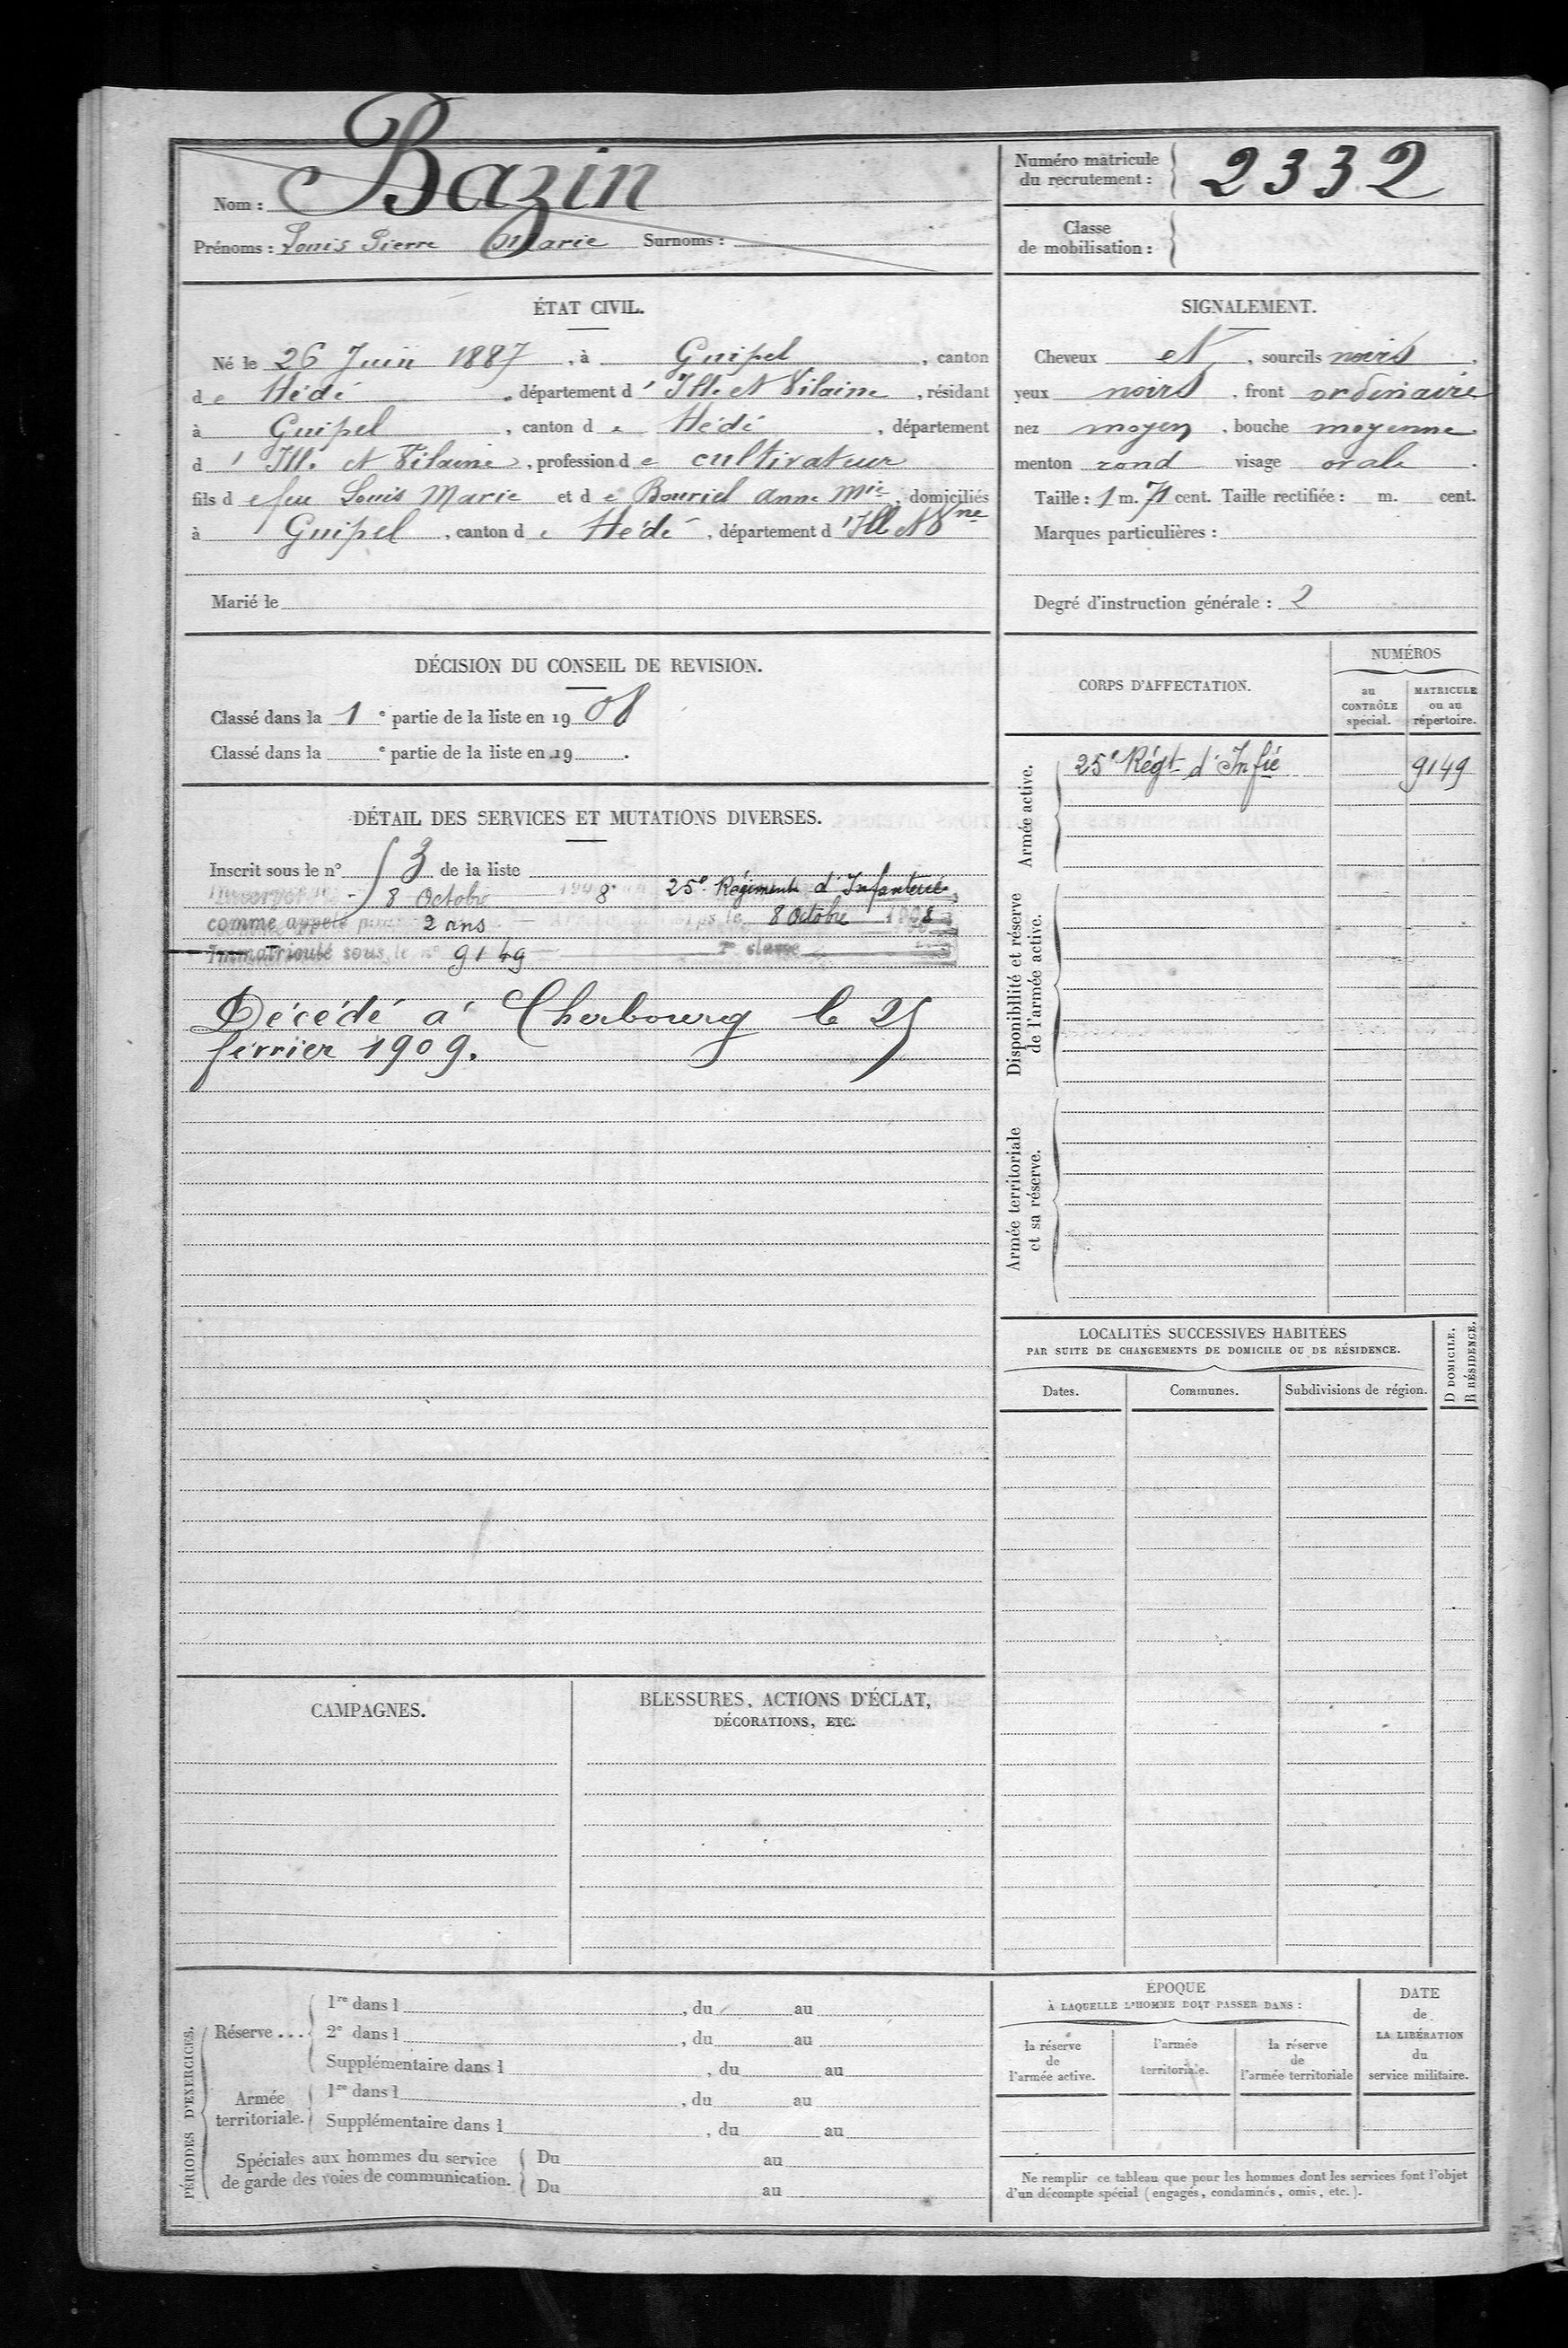 Nom : Bazin
Prénoms : Louis Pierre Marie Surnoms :
Numéro matricule du recrutement : 2332
Classe de mobilisation :
ÉTAT CIVIL.
Né le 26 Juin 1887, à Guipel, canton
de Hédé, département d'Ille et Vilaine, résidant
à Guipel, canton de Hédé, département
d'Ille et Vilaine, profession de cultivateur
fils de feu Louis Marie et de Bouriel Anne Mie, domiciliés
à Guipel, canton de Hédé, département d'Ill. et Vne
Marié le
SIGNALEMENT.
Cheveux et, sourcils noirs,
yeux noirs, front ordinaire
nez moyen, bouche moyenne
menton rond visage ovale.
Taille : 1 m. 71 cent. Taille rectifiée : m. cent.
Marques particulières :
Degré d'instruction générale : 2
DÉCISION DU CONSEIL DE REVISION.
Classé dans la 1e partie de la liste en 1908
Classé dans la e partie de la liste en 19 .
DÉTAIL DES SERVICES ET MUTATIONS DIVERSES.
Inscrit sous le n° 53 de la liste
8 Octobre 1908 25e Régiment d'Infanterie
comme appelé pour 2 ans 8 Octobre 1908
Immatriculé sous le n° 9149 2e classe
Décédé à Cherbourg le 25
février 1909.
CORPS D'AFFECTATION.
NUMÉROS
au CONTRÔLE spécial.
MATRICULE ou au répertoire.
Armée active.
25e Régt d'Infie 9149
Disponibilité et réserve de l'armée active.
Armée territoriale et sa réserve.
LOCALITÉS SUCCESSIVES HABITÉES
PAR SUITE DE CHANGEMENTS DE DOMICILE OU DE RÉSIDENCE.
Dates. Communes. Subdivisions de région.
D DOMICILE.
R RÉSIDENCE.
CAMPAGNES.
BLESSURES, ACTIONS D'ÉCLAT,
DÉCORATIONS, ETC.
PÉRIODES D'EXERCICES.
Réserve ...
1re dans l , du au
2e dans l , du au
Supplémentaire dans l , du au
Armée territoriale.
1re dans l , du au
Supplémentaire dans l , du au
Spéciales aux hommes du service
de garde des voies de communication.
Du au
Du au
ÉPOQUE
À LAQUELLE L'HOMME DOIT PASSER DANS :
la réserve de l'armée active.
l'armée territoriale.
la réserve de l'armée territoriale
DATE de LA LIBÉRATION du service militaire.
Ne remplir ce tableau que pour les hommes dont les services font l'objet
d'un décompte spécial (engagés, condamnés, omis, etc.).